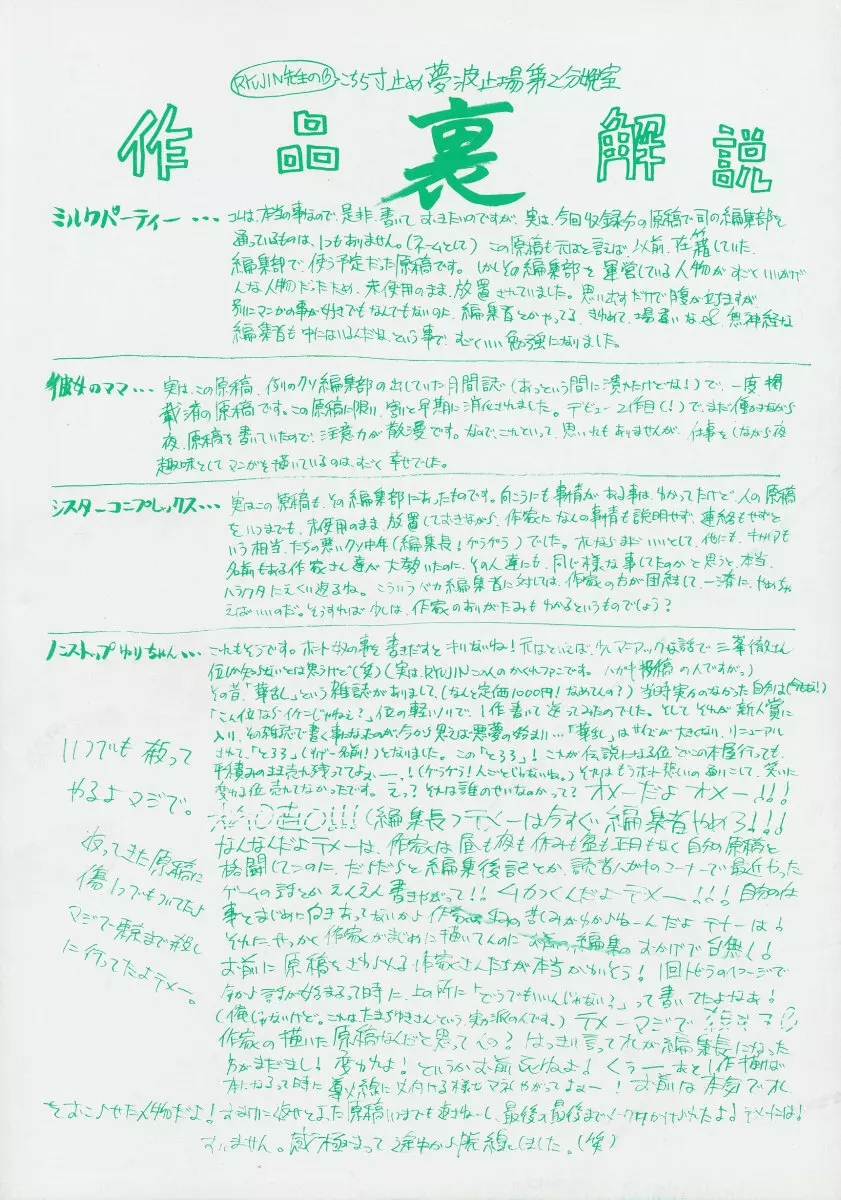 RYUJIN先生の こちら寸止め夢波止場第2分娩室
作品裏解説
ミルクパーティー・・・ コレは、本当の事なので、是非、書いておきたいのですが、実は、今回収録分の原稿で司の編集部を
通っているものは、1つもありません。(ネームとして) この原稿も元はと言えば、以前、在籍していた
編集部で、使う予定だった原稿です。しかしその編集部を運営している人物がすごくいいかげ
んな人物だったため、未使用のまま、放置されていました。思い出すだけで腹が立ちますが
別にマンガの事が好きでもなんでもないのに、編集者とかやってる、きわめて、場違いな 無神経な
編集者も中にはいるんだな、という事で、すごくいい勉強になりました。
彼女のママ・・・ 実は、この原稿、例のクソ編集部の出していた月間誌(あっという間に潰れたけどな!)で、一度掲
載済の原稿です。この原稿に限り、割と早期に消化されました。デビュー2作目(!)で、まだ働きながら
夜、原稿を書いていたので、注意力が散漫です。なので、これといって、思い入れもありませんが、仕事をしながら夜
趣味としてマンガを描いているのは、すごく幸せでした。
シスターコンプレックス・・・ 実はこの原稿も、その編集部にあったものです。向こうにも事情がある事は、わかってたけど、人の原稿
をいつまでも、未使用のまま、放置しておきながら、作家になんの事情も説明せず、連絡もせずと
いう相当、たちの悪いクソ中年(編集長!ゲラゲラ)でした。オレならまだいいとして、他にも、キャリアも
名前もある作家さん達が大勢いたのに、その人達にも、同じ様な事してたのかと思うと、本当、
ハラワタにえくり返るね。こういうバカ編集者に対しては、作家の方が団結して、一斉に、やめちゃ
えばいいのだ。そうすれば少しは、作家のありがたみもわかるというものでしょう?
ノンストップゆりちゃん・・・ これもそうです。ホント奴の事を書きだすとキリないね!元はといえば、少しマニアックな話で三峯徹さん
位しか知らないとは思うけど(笑)(実は、RYUJINこの人のかくれファンです。ハガキ投稿の人ですが。)
その昔「華乱」という雑誌がありまして、(なんと定価1000円!なめてんの?)当時実力のなかった自分は(今もな!)
「こん位ならイケんじゃねぇ?」位の軽いノリで、1作書いて送ってみたのでした。そしてそれが新人賞に
入り、その雑誌で書く事になったのが、今から思えば悪夢の始まり…「華乱」はサイズが大きくなり、リニューアル
されて、「とろろ」(すげー名前!)となりました。この「とろろ」!これが伝説になる位、どこの本屋行っても、
平積みのまま売れ残っててよぉー、!(ゲラゲラ!人ごとじゃないね。)それはもうホント悲しいの通りこして、笑いに
変わる位売れてなかったです。えっ?それは誰のせいなのかって?オメーだよオメー!!!
(編集長)テメーは今すぐ編集者やめろ!!!
なんなんだよテメーは、作家は昼も夜も休みも盆も正月もなく自分の原稿と
格闘してんのに、だらだらと編集後記とか、読者ハガキのコーナーで最近やった
ゲームの話とかえんえん書きやがって!!ムカつくんだよテメー!!!自分の仕
事とまじめに向きあってないから作家 の苦しみがわからねーんだよテメーは!
それに、せっかく作家がまじめに描いてんのに お前の編集のおかげで台無し!
お前に原稿をさわられる作家さんたちが本当かわいそう!1回トビラのイメージで
今から話が始まるって時に、上の所に「どうでもいいんじゃない?」って書いてたよなぁ!
(俺じゃないけど。これは、たまちゆきさんという、実力派の人です。)テメーマジで
作家の描いた原稿なんだと思ってんの?はっきり言ってオレが編集長になった
方がまだまし!変われよ!というかお前死ねよ!くぅー、あと1作描けば
本になるって時に 以内ける様なマネしやがってよぉー!お前は本気でオレ
をおこらせた人物だよ!お前に返せと言った原稿いまでも返さねーし、最後の最後までメーワクかけられたよ!テメーには!
すいません。感極まって途中から脱線しました。(笑)
いつでも殺って
やるよマジで。
返ってきた原稿に
傷1つでもついてたら
マジで東京まで殺し
に行ってたよテメー。